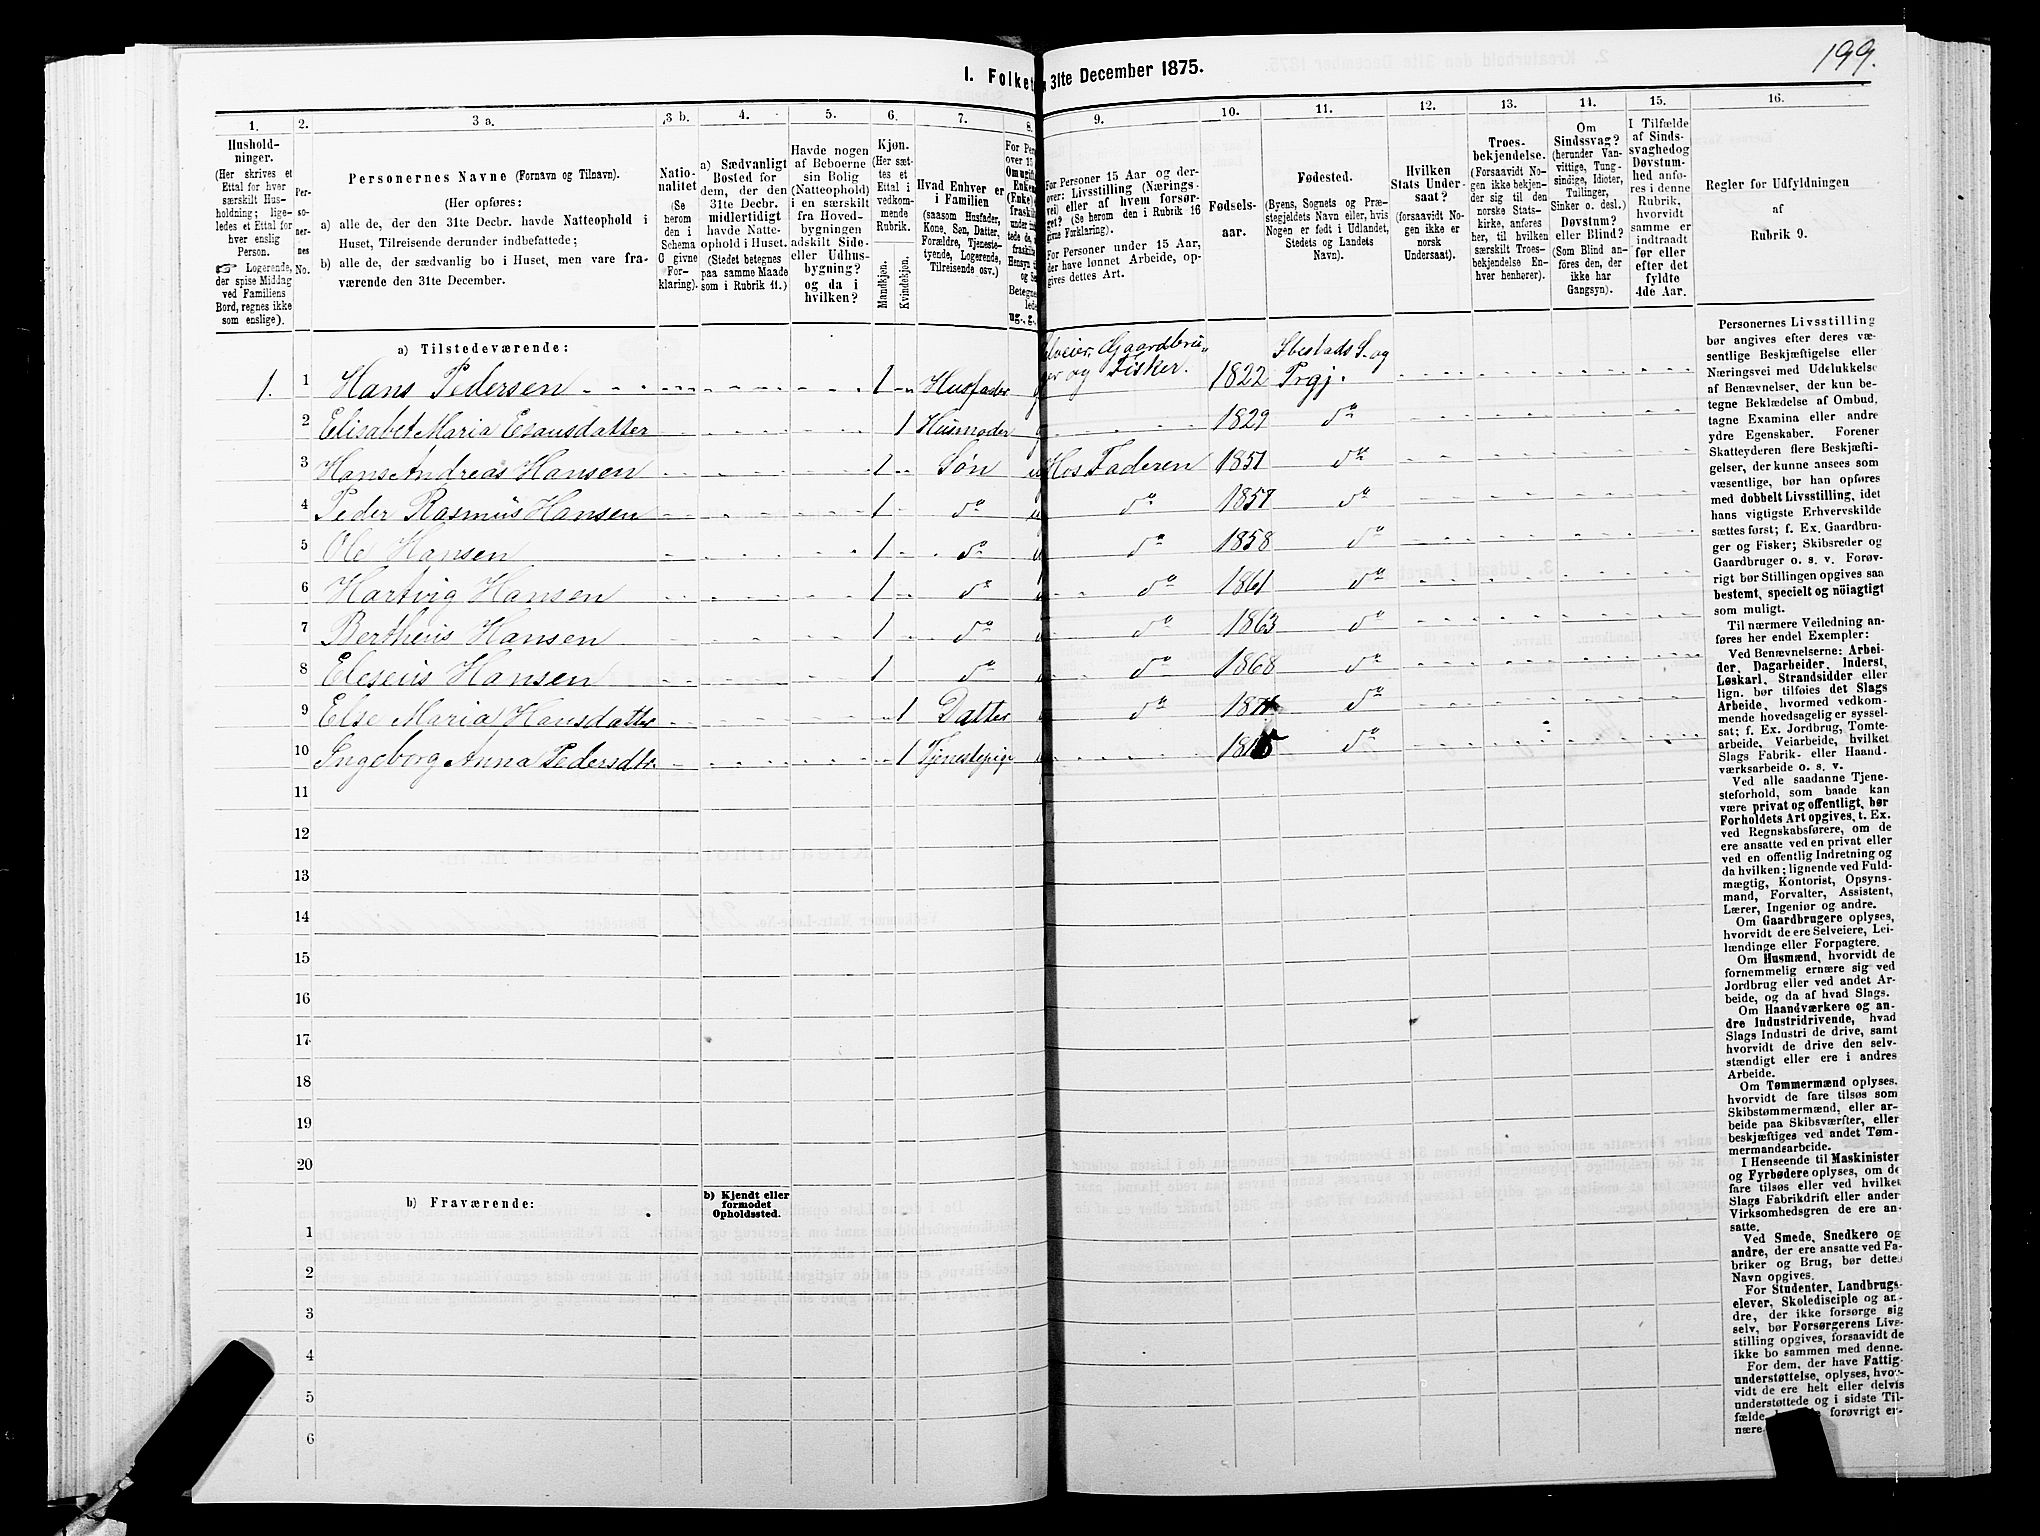 199.
1. Folket
31te December 1875.
1.
Hushold-
ninger.
(Her skrives et
Ettal for hver
særskilt Hus-
holdning; lige-
ledes et Ettal for
hver enslig
Person.
☞ Logerende,
der spise Middag
ved Familiens
Bord, regnes ikke
som enslige).
2.
Per-
so-
ner-
nes
No.
3 a.
Personernes Navne (Fornavn og Tilnavn).
(Her opføres:
a) alle de, der den 31te Decbr. havde Natteophold i
Huset, Tilreisende derunder indbefattede;
b) alle de, der sædvanlig bo i Huset, men vare fra-
værende den 31te December.
3 b.
Natio-
nalitet
(Se
herom
den i
Schema
C givne
For-
klaring).
4.
a) Sædvanligt
Bosted for
dem, der den
31te Decbr.
midlertidigt
havde Natte-
ophold i Huset.
(Stedet betegnes
paa samme Maade
som i Rubrik 11.)
5.
Havde nogen
af Beboerne
sin Bolig
(Natteophold)
i en særskilt
fra Hoved-
bygningen
adskilt Side-
eller Udhus-
bygning?
og da i
hvilken?
6.
Kjøn.
(Her sæt-
tes et
Ettal i
vedkom-
mende
Rubrik.
Mandkjøn.
Kvindekjøn.
7.
Hvad Enhver er
i Familien
(saasom Husfader,
Kone, Søn, Datter,
Forældre, Tjeneste-
tyende, Logerende,
Tilreisende osv.)
8.
9.
For Personer 15 Aar og der-
over: Livsstilling (Nærings-
vei) eller af hvem forsør-
get? (Se herom den i Rubrik 16
givne Forklaring).
For Personer under 15 Aar,
der have lønnet Arbeide, op-
gives dettes Art.
10.
Fødsels-
aar.
11.
Fødested.
(Byens, Sognets og Præ-
stegjeldets Navn eller, hvis
Nogen er født i Udlandet,
Stedets og Landets
Navn).
12.
Hvilken
Stats Under-
saat?
(forsaavidt No-
gen ikke er
norsk
Undersaat).
13.
Troes-
bekjendelse.
(Forsaavidt No-
gen ikke bekjen-
der sig til den
norske Stats-
kirke, anføres
her, til hvilken
særskilt Troes-
bekjendelse En-
hver henhører).
14.
Om
Sindssvag?
(herunder Van-
vittige, Tung-
sindige, Idioter,
Tullinger,
Sinker o. desl.)
Døvstum?
eller Blind?
(Som Blind an-
føres den, der
ikke har
Gangsyn).
15.
I Tilfælde
af Sinds-
svaghed og
Døvstum-
hed anfø-
res i denne
Rubrik,
hvorvidt
samme er
indtraadt
før eller
efter det
fyldte
4de Aar.
16.
Regler for Udfyldningen
af
Rubrik 9.
a) Tilstedeværende:
1. 1 Hans Pedersen 1 Husfader Selveier, Gaardbru-
ger og Fisker. 1822 Ibestads S. og
Prgj.
2 Elisabet Maria Esausdatter 1 Husmoder 1829 do
3 Hans Andreas Hansen 1 Søn Hos Faderen 1851 do
4 Peder Rasmus Hansen 1 do do 1857 do
5 Ole Hansen 1 do do 1858 do
6 Hartvig Hansen 1 do do 1861 do
7 Bertheus Hansen 1 do do 1863 do
8 Eleseus Hansen 1 do do 1868 do
9 Else Maria Hansdatter 1 Datter do do
10 Ingeborg Anna Pedersdtr 1 Tjenestepige do
11
12
13
14
15
16
17
18
19
20
b) Fraværende:
b) Kjendt eller
formodet
Opholdssted.
1
2
3
4
5
6
Personernes Livsstilling
bør angives efter deres væ-
sentlige Beskjæftigelse eller
Næringsvei med Udelukkelse
af Benævnelser, der kun be-
tegne Beklædelse af Ombud,
tagne Examina eller andre
ydre Egenskaber. Forener
Skatteyderen flere Beskjæfti-
gelser, der kunne ansees som
væsentlige, bør han opføres
med dobbelt Livsstilling, idet
hans vigtigste Erhvervskilde
sættes først; f. Ex. Gaardbru-
ger og Fisker; Skibsreder og
Gaardbruger o. s. v. Forøv-
rigt bør Stillingen opgives saa
bestemt, specielt og nöiagtigt
som muligt.
Til nærmere Veiledning an-
føres her endel Exempler:
Ved Benævnelserne: Arbei-
der, Dagarbeider, Inderst,
Løskarl, Strandsidder eller
lign. bør tilføies det Slags
Arbeide, hvormed vedkom-
mende hovedsagelig er syssel-
sat; f. Ex. Jordbrug, Tomte-
arbeide, Veiarbeide, hvilket
Slags Fabrik- eller Haand-
værksarbeide o. s. v.
Ved alle saadanne Tjene-
steforhold, som baade kan
være privat og offentligt, bør
Forholdets Art opgives, t. Ex.
ved Regnskabsførere, om de
ere ansatte ved en privat eller
ved en offentlig Indretning og
da hvilken; lignende ved Fuld-
mægtig, Kontorist, Opsyns-
mand, Forvalter, Assistent,
Lærer, Ingeniør og andre.
Om Gaardbrugere oplyses,
hvorvidt de ere Selveiere, Lei-
lændinge eller Forpagtere.
Om Husmænd, hvorvidt de
fornemmelig ernære sig ved
Jordbrug eller ved andet Ar-
beide, og da af hvad Slags.
Om Haandværkere og an-
dre Industridrivende, hvad
Slags Industri de drive, samt
hvorvidt de drive den selv-
stændigt eller ere i andres
Arbeide.
Om Tømmermænd oplyses,
hvorvidt de fare tilsøs som
Skibstømmermænd, eller ar-
beide paa Skibsværfter, eller
beskjæftiges ved andet Tøm-
mermandsarbeide.
I Henseende til Maskinister
og Fyrbødere oplyses, om de
fare tilsøs eller ved hvilket
Slags Fabrikdrift eller anden
Virksomhedsgren de ere an-
satte.
Ved Smede, Snedkere og
andre, der ere ansatte ved Fa-
briker og Brug, bør dettes
Navn opgives.
For Studenter, Landbrugs-
elever, Skoledisciple og an-
dre, der ikke forsørge sig
selv, bør Forsørgerens Livs-
stilling opgives, forsaavidt de
ikke bo sammen med denne.
For dem, der have Fattig-
understøttelse, oplyses, hvor-
vidt de ere helt eller delvis
understøttede og i sidste Til-
fælde, forøvrigt er-
nære